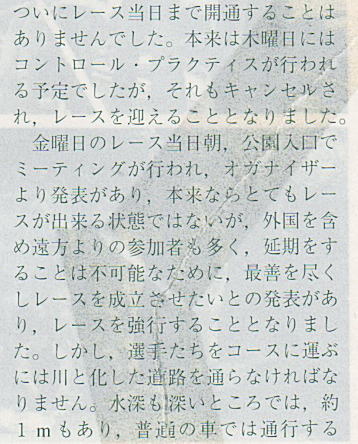 ついにレース当日まで開通することは
ありませんでした。本来は木曜日には
コントロール・プラクティスが行われ
る予定でしたが，それもキャンセルさ
れ，レースを迎えることとなりました。
　金曜日のレース当日朝，公園入口で
ミーティングが行われ，オガナイザー
より発表があり，本来ならとてもレー
スが出来る状態ではないが，外国を含
め遠方よりの参加者も多く，延期をす
ることは不可能なために，最善を尽く
しレースを成立させたいとの発表があ
り，レースを強行することとなりまし
た。しかし，選手たちをコースに運ぶ
には川と化した道路を通らなければな
りません。水深も深いところでは，約
1mもあり，普通の車では通行する